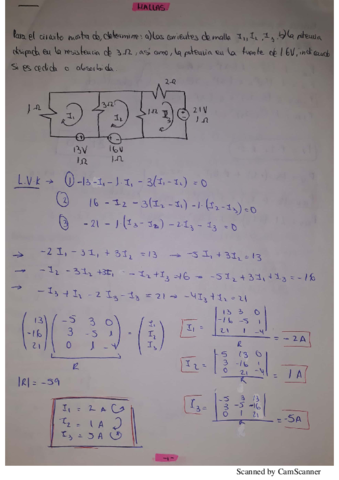 MALLAS
Para el circuito mostrado, determine: a) Las corrientes de malla I₁, I₂, I₃ b) la potencia
disipada en la resistencia de 3Ω, así como, la potencia en la fuente de 16V, indicando
si es cedida o absorbida.
2Ω
1Ω
3Ω
1Ω
21V
1Ω
I₁
I₂
I₃
13V
1Ω
16V
1Ω
L.V.K → ① -13 - I₁ - 1·I₁ - 3(I₁-I₂) = 0
② 16 - I₂ - 3(I₂-I₁) - 1·(I₂-I₃) = 0
③ -21 - 1·(I₃-I₂) - 2I₃ - I₃ = 0
→ -2I₁ - 3I₁ + 3I₂ = 13 → -5I₁ + 3I₂ = 13
→ -I₂ - 3I₂ + 3I₁ - I₂ + I₃ = -16 → -5I₂ + 3I₁ + I₃ = -16
→ -I₃ + I₂ - 2I₃ - I₃ = 21 → -4I₃ + I₂ = 21
13 -5 3 0 I₁
-16 3 -5 1 = I₂
21 0 1 -4 I₃
R
|R| = -59
I₁ = 2A
I₂ = 1A
I₃ = 5A
13 3 0
I₁ = -16 -5 1 = -2A
21 1 -4
R
-5 13 0
I₂ = 3 -16 1 = 1A
0 21 -4
R
-5 3 13
I₃ = 3 -5 -16 = -5A
0 1 21
R
Scanned by CamScanner